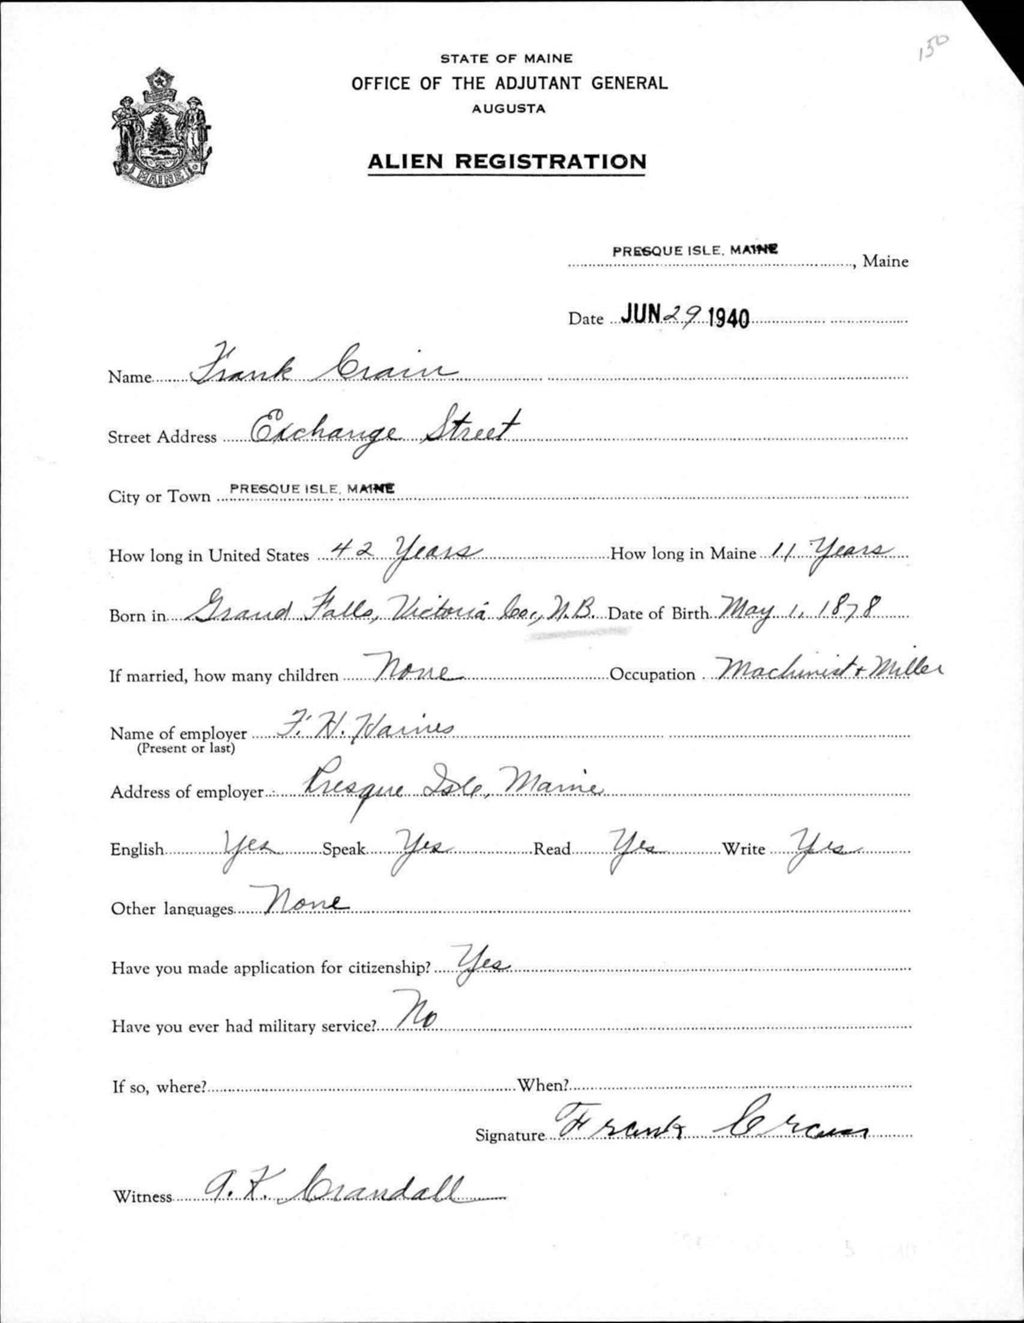 150
STATE OF MAINE
OFFICE OF THE ADJUTANT GENERAL
AUGUSTA
ALIEN REGISTRATION
MAINE
PRESQUE ISLE, MAINE, Maine
Date JUN 29 1940
Name Frank Crain
Street Address Exchange Street
City or Town PRESQUE ISLE, MAINE
How long in United States 42 Years How long in Maine 11 Years
Born in Grand Falls, Victoria Co., N.B. Date of Birth May 1, 1878
If married, how many children None Occupation Machinist + Miller
Name of employer F. H. Haines
(Present or last)
Address of employer Presque Isle, Maine
English Yes Speak Yes Read Yes Write Yes
Other languages None
Have you made application for citizenship? Yes
Have you ever had military service? No
If so, where? When?
Signature Frank Crain
Witness A. K. Crandall